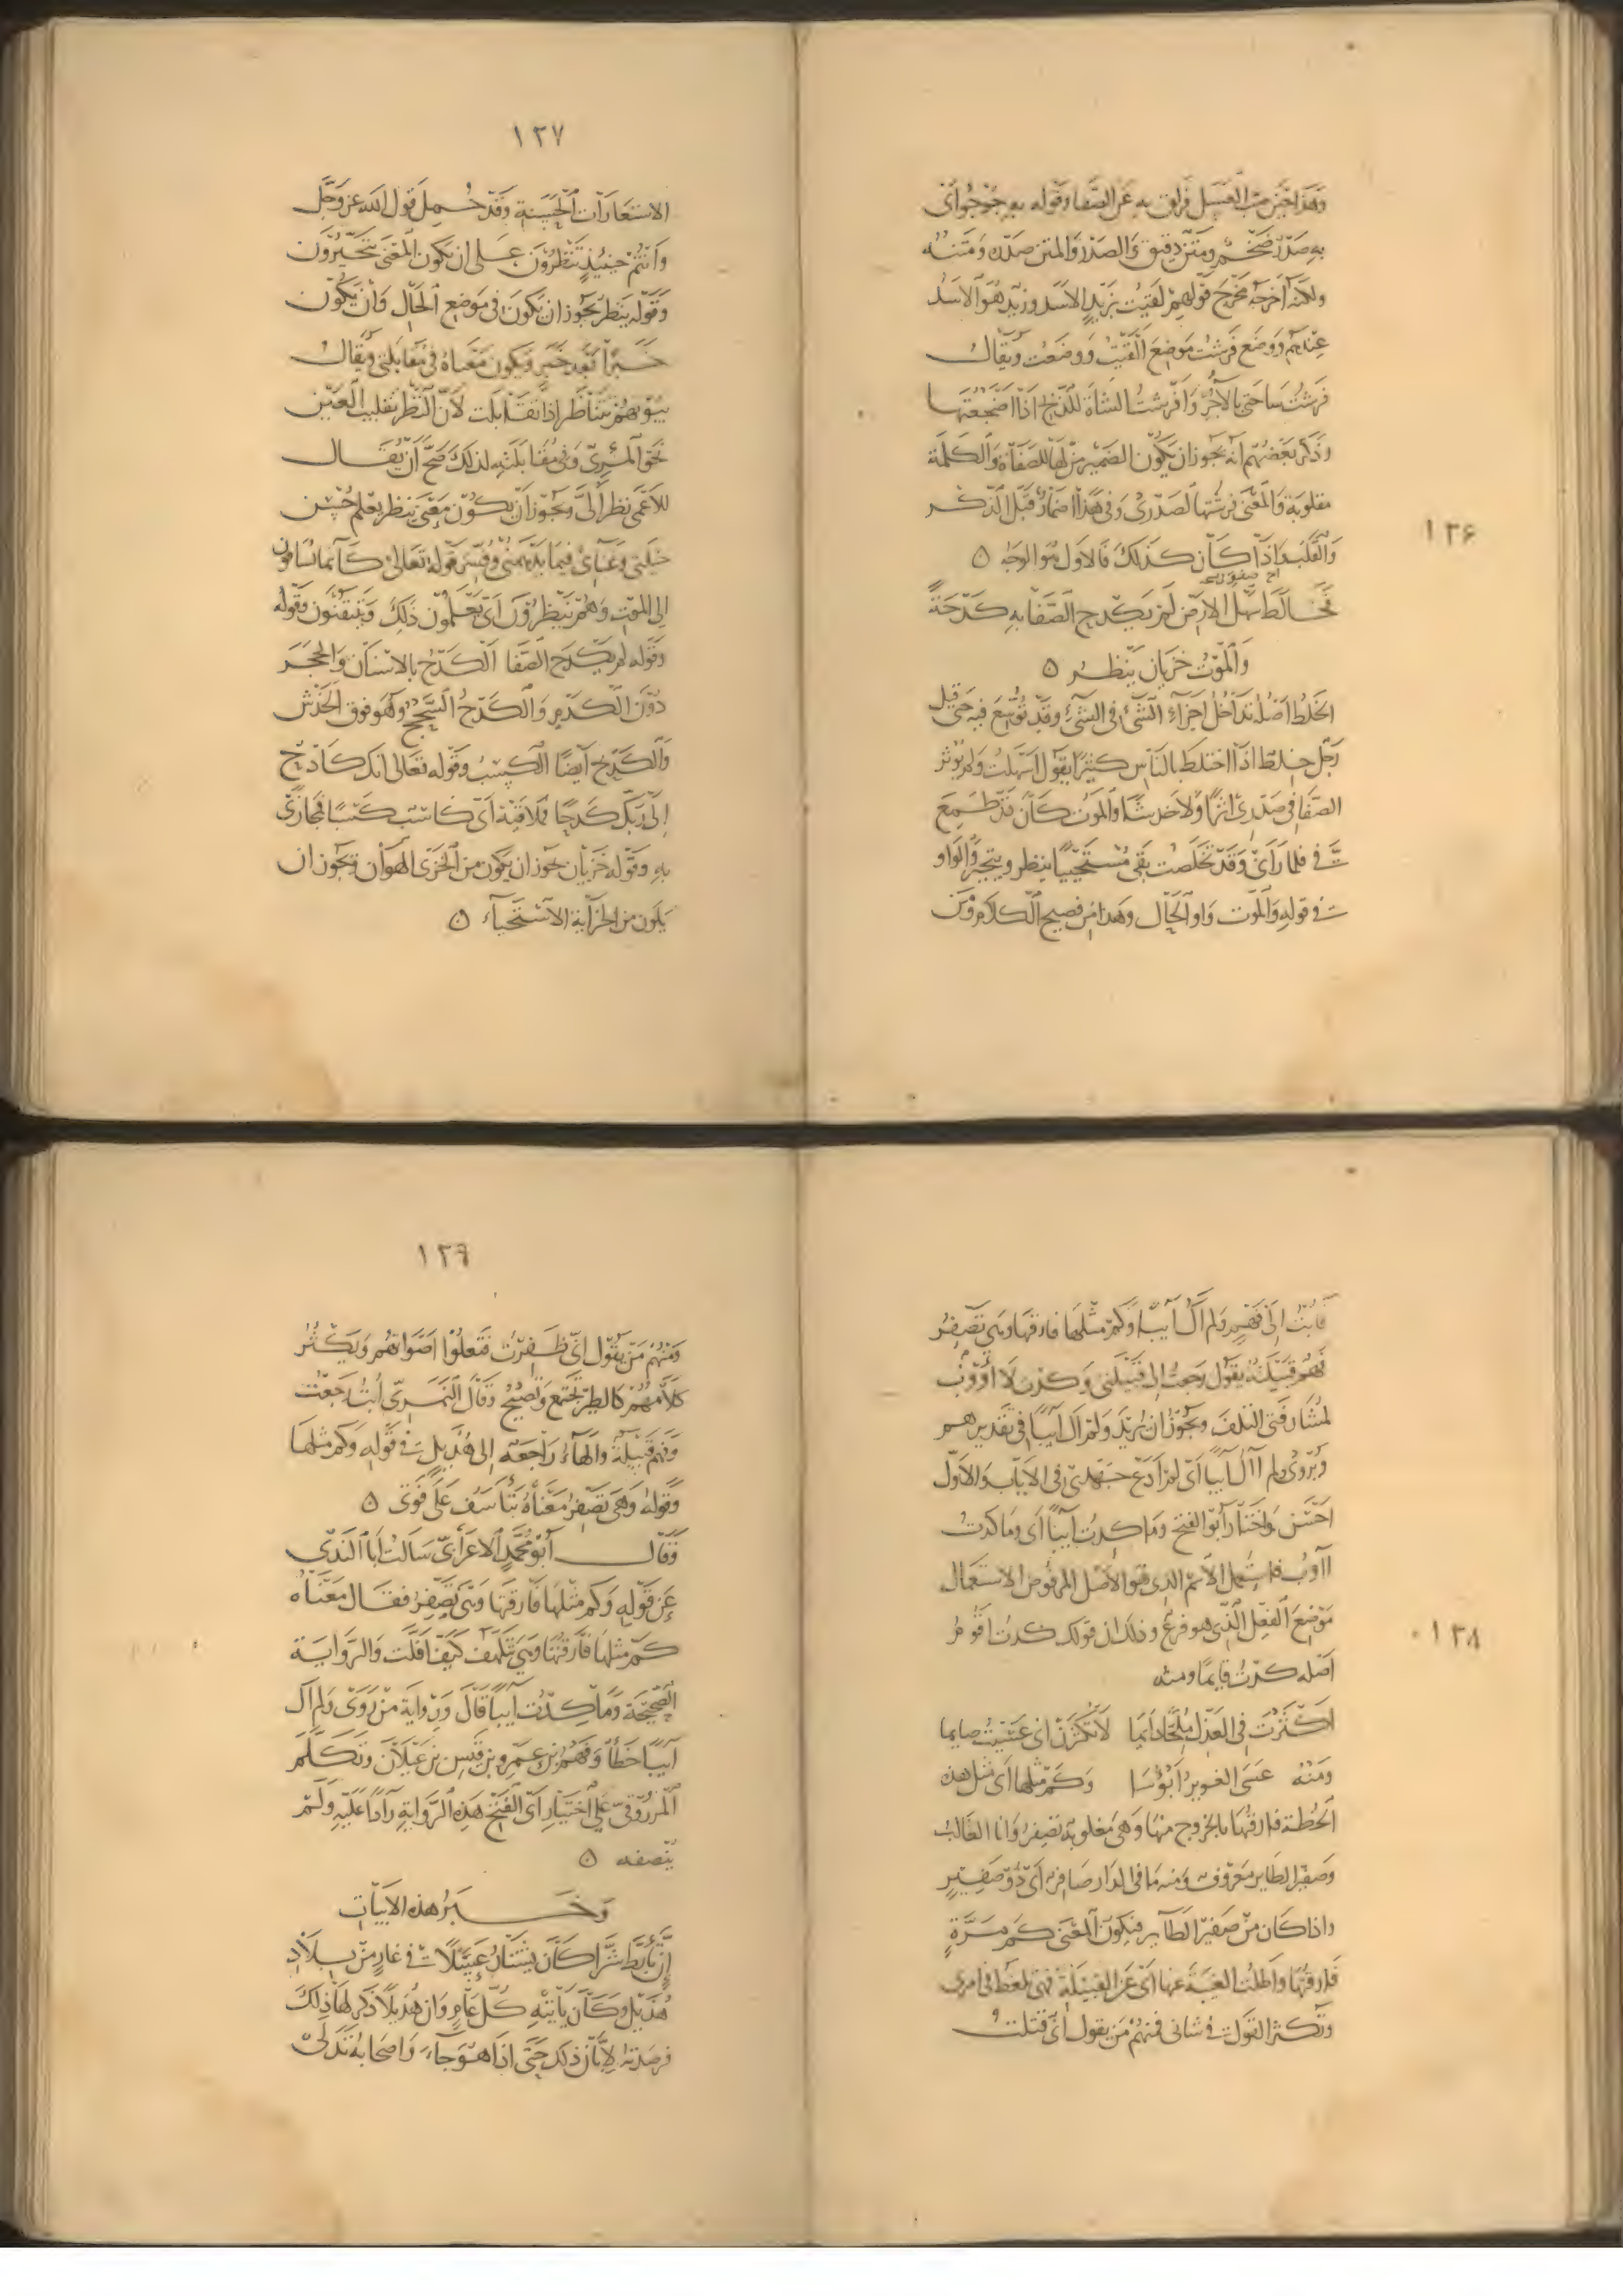 ١٣٦
وهذا حين صب العسل فزلق به عن الصفا وقوله به جؤجؤ اى
به صدر ضخم ومتن دقيق والصدر والمتن صدره ومتنه
ولكنه اخرجه مخرج قولهم لقيت بزيد الاسد وزيد هو الاسد
عندهم ووضع فرشت موضع القيت ووضعت ويقال
فرشت ساحتى بالآجر وافرشت الشاة للذبح اذا اضجعتها
وذكر بعضهم انه يجوز ان يكون الضمير من لها للصفاة والكلمة
مقلوبة والمعنى فرشتها لصدرى وفى هذا اضمار قبل الذكر
والقلب واذا كان كذلك فالاول هو الوجه
فخالط سهل الارض لم يكدح الصفا به كدحة
والموت خزيان ينظر
الخلط اصله تداخل اجزاء الشئ فى الشئ وقد توسع فيه حتى قيل
رجل خلط اذا اختلط بالناس كثيرا يقول اسهلت ولم يؤثر
الصفا فى صدرى اثرا ولا خدشا والموت كان قد طمع
فى فلما رآنى وقد تخلصت بقى مستحييا ينظر ويتحير والواو
فى قوله والموت واو الحال وهذا من فصيح الكلام ومن
١٣٧
الاستعارات الحسنة وقد حمل قول الله عز وجل
وانتم حينئذ تنظرون على ان يكون المعنى تتحيرون
وقوله ينظر يجوز ان يكون فى موضع الحال وان يكون
خبرا بعد خبر ويكون معناه فى مقابلتى ويقال
بيوتهم تتناظر اذا تقابلت لان النظر تقليب العين
نحو المرئى وفى مقابلته لذلك صح ان يقال
للاعمى نظر الى ويجوز ان يكون معنى ينظر يعلم حسن
حيلتى وغنائى فيما يدهمنى وفسر قوله تعالى كانما يساقون
الى الموت وهم ينظرون اى يعلمون ذلك ويتيقنون وقوله
وقوله لم يكدح الصفا الكدح بالاسنان والحجر
دون الكدم والكدح السحج وهو فوق الخدش
والكدح ايضا الكسب وقوله تعالى انك كادح
الى ربك كدحا فملاقيه اى كاسب كسبا فمجازى
به وقوله خزيان يجوز ان يكون من الخزى الهوان ويجوز ان
يكون من الخزاية الاستحياء
١٣٨
فابت الى فهم ولم اك آيبا وكم مثلها فارقتها وهى تصفر
فهم قبيلته يقول رجعت الى قبيلتى وكدت لا اؤوب
لمشارفتى التلف ويجوز ان يريد ولم اك آيبا فى تقديرهم
ويروى ولم آل آيبا اى لم ادع جهدى فى الاياب والاول
احسن واختار ابو الفتح وما كدت آيبا اى وما كدت
اآوب فاستعمل الاسم الذى هو الاصل المرفوض الاستعمال
موضع الفعل الذى هو فرع وذلك ان قولك كدت اقوم
اصله كدت قايما ومنه
اكثرت فى العذل ملحا دايما لا تكثرن انى عسيت صايما
ومنه عسى الغوير ابؤسا وكم مثلها اى مثل هذه
الخطة فارقتها بالخروج منها وهى مغلوبة تصفر وانا الغالب
وصفير الطاير معروف ومنه ما فى الدار صافر اى ذو صفير
واذا كان من صفير الطاير فيكون المعنى كم مرة
فارقتها واطلت الغيبة عنها اى عن القبيلة فهى تلغط فى امرى
وتكثر القول فى شانى فمنهم من يقول انى قتلت
١٣٩
ومنهم من يقول انى ظفرت فتعلوا اصواتهم ويكثر
كلامهم كالطير تجتمع وتصيح وقال النمرى ابت رجعت
وفهم قبيلة والهاء راجعة الى هذيل فى قوله وكم مثلها
وقوله وهى تصفر معناه تتاسف على فوتى
وقال ابو محمد الاعرابى سالت ابا الندى
عن قوله وكم مثلها فارقتها وهى تصفر فقال معناه
كم مثلها فارقتها وهى تتلهف كيف افلت والرواية
الصحيحة وما كدت آيبا قال ورواية من روى ولم اك
آيبا خطأ وفهم بن عمرو بن قيس بن عيلان وتكلم
المرزوقى على اختيار ابى الفتح هذه الرواية رادا عليه ولم
ينصفه
وخبر هذه الابيات
ان تأبط شرا كان يشتار عسلا فى غار من بلاد
هذيل وكان ياتيه كل عام وان هذيلا ذكر لها ذلك
فرصدته لابان ذلك حتى اذا هو جاء واصحابه تدلى